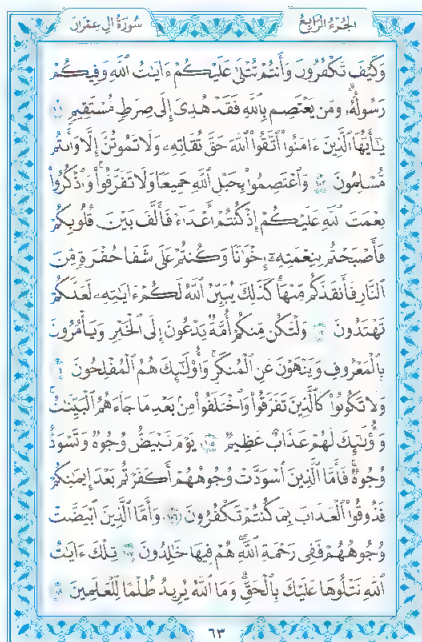 الجزء الرابع
سورة آل عمران
وَكَيْفَ تَكْفُرُونَ وَأَنتُمْ تُتْلَىٰ عَلَيْكُمْ ءَايَٰتُ ٱللَّهِ وَفِيكُمْ
رَسُولُهُۥ وَمَن يَعْتَصِم بِٱللَّهِ فَقَدْ هُدِىَ إِلَىٰ صِرَٰطٍ مُّسْتَقِيمٍ ١٠١
يَٰٓأَيُّهَا ٱلَّذِينَ ءَامَنُوا۟ ٱتَّقُوا۟ ٱللَّهَ حَقَّ تُقَاتِهِۦ وَلَا تَمُوتُنَّ إِلَّا وَأَنتُم
مُّسْلِمُونَ ١٠٢ وَٱعْتَصِمُوا۟ بِحَبْلِ ٱللَّهِ جَمِيعًا وَلَا تَفَرَّقُوا۟ وَٱذْكُرُوا۟
نِعْمَتَ ٱللَّهِ عَلَيْكُمْ إِذْ كُنتُمْ أَعْدَآءً فَأَلَّفَ بَيْنَ قُلُوبِكُمْ
فَأَصْبَحْتُم بِنِعْمَتِهِۦٓ إِخْوَٰنًا وَكُنتُمْ عَلَىٰ شَفَا حُفْرَةٍ مِّنَ
ٱلنَّارِ فَأَنقَذَكُم مِّنْهَا كَذَٰلِكَ يُبَيِّنُ ٱللَّهُ لَكُمْ ءَايَٰتِهِۦ لَعَلَّكُمْ
تَهْتَدُونَ ١٠٣ وَلْتَكُن مِّنكُمْ أُمَّةٌ يَدْعُونَ إِلَى ٱلْخَيْرِ وَيَأْمُرُونَ
بِٱلْمَعْرُوفِ وَيَنْهَوْنَ عَنِ ٱلْمُنكَرِ وَأُو۟لَٰٓئِكَ هُمُ ٱلْمُفْلِحُونَ ١٠٤
وَلَا تَكُونُوا۟ كَٱلَّذِينَ تَفَرَّقُوا۟ وَٱخْتَلَفُوا۟ مِنۢ بَعْدِ مَا جَآءَهُمُ ٱلْبَيِّنَٰتُ
وَأُو۟لَٰٓئِكَ لَهُمْ عَذَابٌ عَظِيمٌ ١٠٥ يَوْمَ تَبْيَضُّ وُجُوهٌ وَتَسْوَدُّ
وُجُوهٌ فَأَمَّا ٱلَّذِينَ ٱسْوَدَّتْ وُجُوهُهُمْ أَكَفَرْتُم بَعْدَ إِيمَٰنِكُمْ
فَذُوقُوا۟ ٱلْعَذَابَ بِمَا كُنتُمْ تَكْفُرُونَ ١٠٦ وَأَمَّا ٱلَّذِينَ ٱبْيَضَّتْ
وُجُوهُهُمْ فَفِى رَحْمَةِ ٱللَّهِ هُمْ فِيهَا خَٰلِدُونَ ١٠٧ تِلْكَ ءَايَٰتُ
ٱللَّهِ نَتْلُوهَا عَلَيْكَ بِٱلْحَقِّ وَمَا ٱللَّهُ يُرِيدُ ظُلْمًا لِّلْعَٰلَمِينَ ١٠٨
٦٣